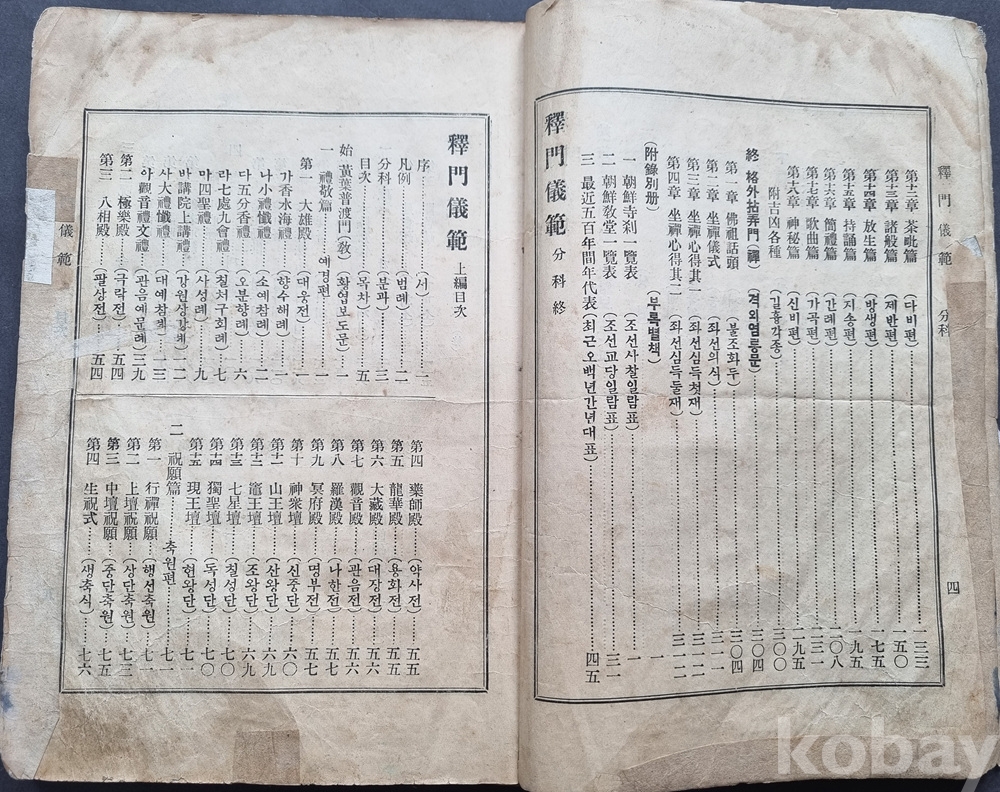 釋門儀範 分科 四
第十二章 茶毗篇 (다비편) 一三三
第十三章 諸般篇 (제반편) 一五〇
第十四章 放生篇 (방생편) 一七五
第十五章 持誦篇 (지송편) 一九五
第十六章 簡禮篇 (간례편) 二〇八
第十七章 歌曲篇 (가곡편) 二三一
第十八章 神秘篇 (신비편) 二九五
附吉凶各種 (길흉각종) 三〇〇
終 格外拈弄門(禪) (격외염롱문) 三〇四
第一章 佛祖話頭 (불조화두) 三〇四
第二章 坐禪儀式 (좌선의식) 三一一
第三章 坐禪心得其一 (좌선심득첫재)
第四章 坐禪心得其二 (좌선심득둘재)
(附錄別册) (부록별책) 一
一 朝鮮寺刹一覽表 (조선사찰일람표) 一
二 朝鮮敎堂一覽表 (조선교당일람표) 三一
三 最近五百年間年代表 (최근오백년간년대표) 四五
釋門儀範 分科終
儀範
釋門儀範 上編目次
序 (서) 一
凡例 (범례) 二
分科 (분과) 三
目次 (목차) 五
始 黃葉普渡門(敎) (황엽보도문) 一
一 禮敬篇 예경편 一
第一 大雄殿 (대웅전) 一
가香水海禮 (향수해례) 一
나小禮懺禮 (소예참례) 二
다五分香禮 (오분향례) 六
라七處九會禮 (칠처구회례) 七
마四聖禮 (사성례) 九
바講院上講禮 (강원상강례) 一二
사大禮懺禮 (대예참례) 一三
아觀音禮文禮 (관음예문례) 三九
第二 極樂殿 (극락전) 五四
第三 八相殿 (팔상전) 五四
第四 藥師殿 (약사전) 五五
第五 龍華殿 (용화전) 五五
第六 大藏殿 (대장전) 五六
第七 觀音殿 (관음전) 五六
第八 羅漢殿 (나한전) 五七
第九 冥府殿 (명부전) 五七
第十 神衆壇 (신중단) 六〇
第十一 山王壇 (산왕단) 六九
第十二 竈王壇 (조왕단) 六九
第十三 七星壇 (칠성단) 七〇
第十四 獨聖壇 (독성단) 七〇
第十五 現王壇 (현왕단) 七一
二 祝願篇 축원편 七一
第一 行禪祝願 (행선축원) 七一
第二 上壇祝願 (상단축원) 七三
第三 中壇祝願 (중단축원) 七五
第四 生祝式 (생축식) 七六
kobay